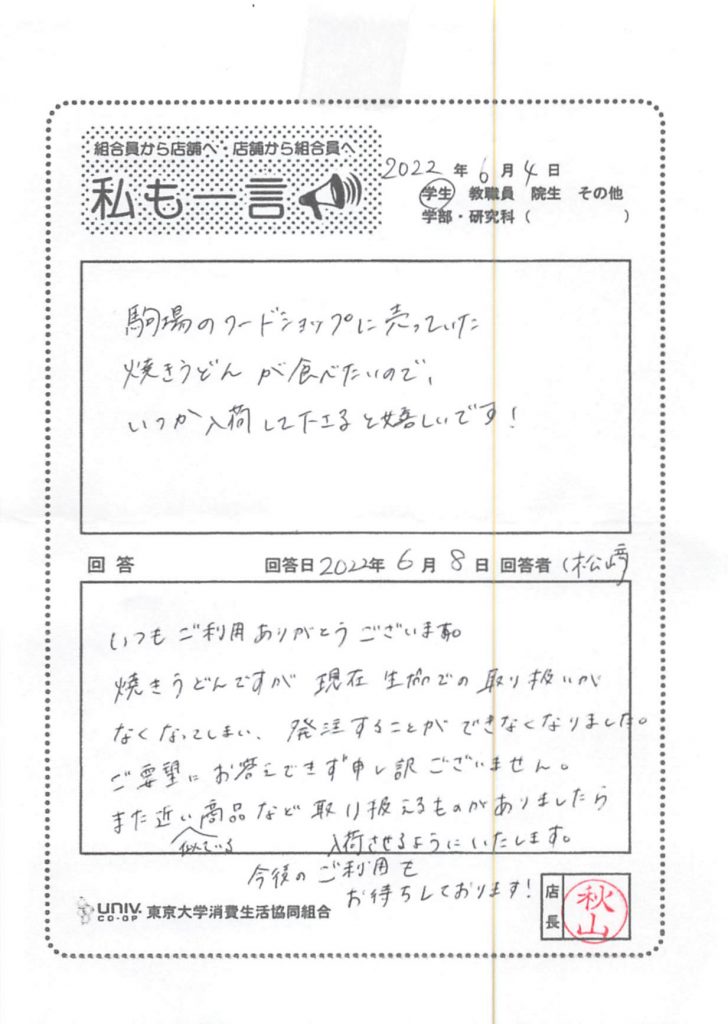 組合員から店舗へ・店舗から組合員へ
私も一言
2022年6月4日
学生 教職員 院生 その他
学部・研究科( )
駒場のフードショップに売っていた
焼きうどんが食べたいので、
いつか入荷して下さると嬉しいです!
回答 回答日2022年6月8日 回答者(松﨑
いつもご利用ありがとうございます。
焼きうどんですが 現在 生協での取り扱いが
なくなってしまい、発注することができなくなりました。
ご要望にお答えできず申し訳ございません。
また近い商品など取り扱えるものがありましたら
似ている 入荷させるようにいたします。
今後のご利用も
お待ちしております!
UNIV. CO-OP 東京大学消費生活協同組合
店長 秋山